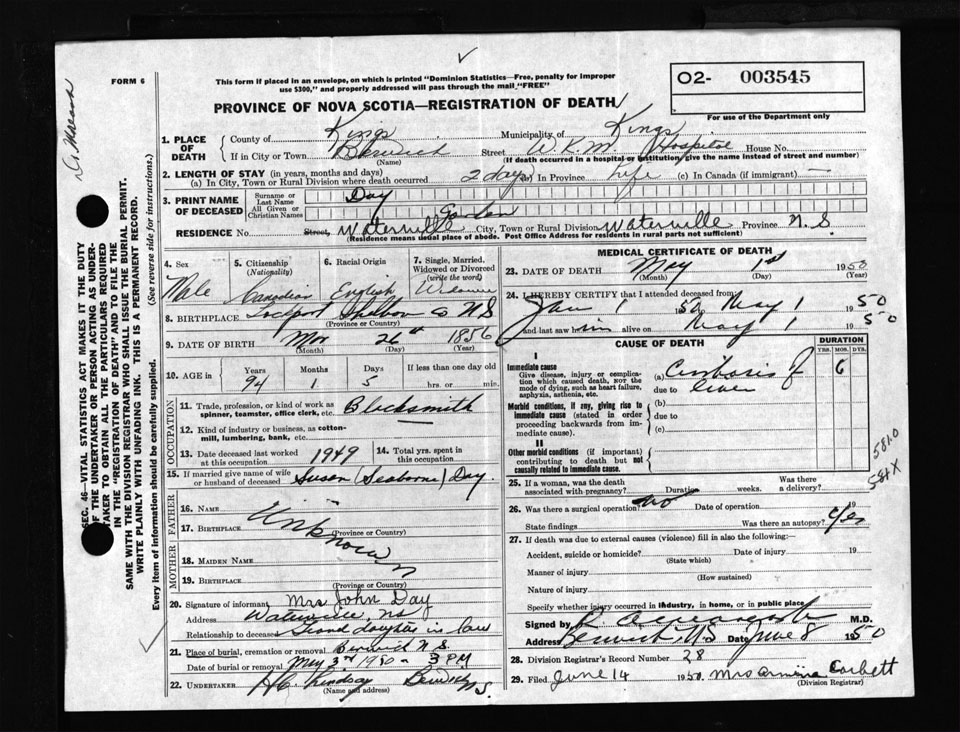 FORM 6
This form if placed in an envelope, on which is printed "Dominion Statistics—Free, penalty for improper
use $300," and properly addressed will pass through the mail "FREE"
O2- 003545
For use of the Department only
PROVINCE OF NOVA SCOTIA—REGISTRATION OF DEATH
1. PLACE OF DEATH
County of Kings Municipality of Kings
If in City or Town Berwick Street W.K.M. Hospital House No.
(Name) (If death occurred in a hospital or institution, give the name instead of street and number)
2. LENGTH OF STAY (in years, months and days)
(a) In City, Town or Rural Division where death occurred 2 days (b) In Province Life (c) In Canada (if immigrant) —
3. PRINT NAME OF DECEASED
Surname or Last Name Day
All Given or Christian Names
RESIDENCE No. Street, Waterville City, Town or Rural Division Waterville Province N.S.
(Residence means usual place of abode. Post Office Address for residents in rural parts not sufficient)
4. Sex Male
5. Citizenship (Nationality) Canadian
6. Racial Origin English
7. Single, Married, Widowed or Divorced (write the word) Widower
8. BIRTHPLACE Lockport Shelbourne Co N.S
(Province or Country)
9. DATE OF BIRTH Mar 26th 1856
(Month) (Day) (Year)
10. AGE in Years 94 Months 1 Days 5 If less than one day old hrs. or min.
OCCUPATION
11. Trade, profession, or kind of work as spinner, teamster, office clerk, etc. Blacksmith
12. Kind of industry or business, as cotton-mill, lumbering, bank, etc.
13. Date deceased last worked at this occupation 1949
14. Total yrs. spent in this occupation
15. If married give name of wife or husband of deceased Susan (Seaborne) Day.
FATHER
16. Name
17. Birthplace Unknown
(Province or Country)
MOTHER
18. Maiden Name
19. Birthplace
(Province or Country)
20. Signature of informant Mrs John Day
Address Waterville, NS
Relationship to deceased Grand daughter in law
21. Place of burial, cremation or removal Berwick N.S.
Date of burial or removal May 3rd 1950 - 3 PM
22. UNDERTAKER Lindsay Berwick N.S.
(Name and address)
MEDICAL CERTIFICATE OF DEATH
23. DATE OF DEATH May 1st 1950
(Month) (Day) (Year)
24. I HEREBY CERTIFY that I attended deceased from
Jan 1 50 May 1 1950
and last saw him alive on May 1 1950
CAUSE OF DEATH
DURATION
YRS. MOS. DYS.
I
Immediate cause
Give disease, injury or complication which caused death, not the mode of dying, such as heart failure, asphyxia, asthenia, etc.
(a) Cirrhosis of 6
due to liver
Morbid conditions, if any, giving rise to immediate cause (stated in order proceeding backwards from immediate cause).
(b)
due to
(c)
II
Other morbid conditions (if important) contributing to death but not causally related to immediate cause.
581.0
25. If a woman, was the death associated with pregnancy? Duration weeks. Was there a delivery?
26. Was there a surgical operation? no Date of operation 19
State findings Was there an autopsy? yes
27. If death was due to external causes (violence) fill in also the following:—
Accident, suicide or homicide? Date of injury 19
(State which)
Manner of injury
(How sustained)
Nature of injury
Specify whether injury occurred in industry, in home, or in public place
Signed by M.D.
Address Berwick, N.S Date June 8 1950
28. Division Registrar's Record Number 28
29. Filed June 14 1950. Mrs Corbett
(Division Registrar)
SEC. 46—VITAL STATISTICS ACT MAKES IT THE DUTY
OF THE UNDERTAKER OR PERSON ACTING AS UNDER-
TAKER TO OBTAIN ALL THE PARTICULARS REQUIRED
IN THE "REGISTRATION OF DEATH" AND TO FILE THE
SAME WITH THE DIVISION REGISTRAR WHO SHALL ISSUE THE BURIAL PERMIT.
WRITE PLAINLY WITH UNFADING INK. THIS IS A PERMANENT RECORD.
Every item of information should be carefully supplied. (See reverse side for instructions.)